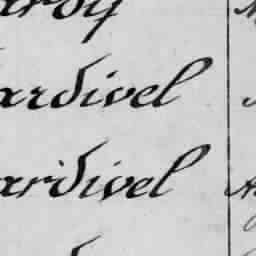 ardy
ardivel
ardivel